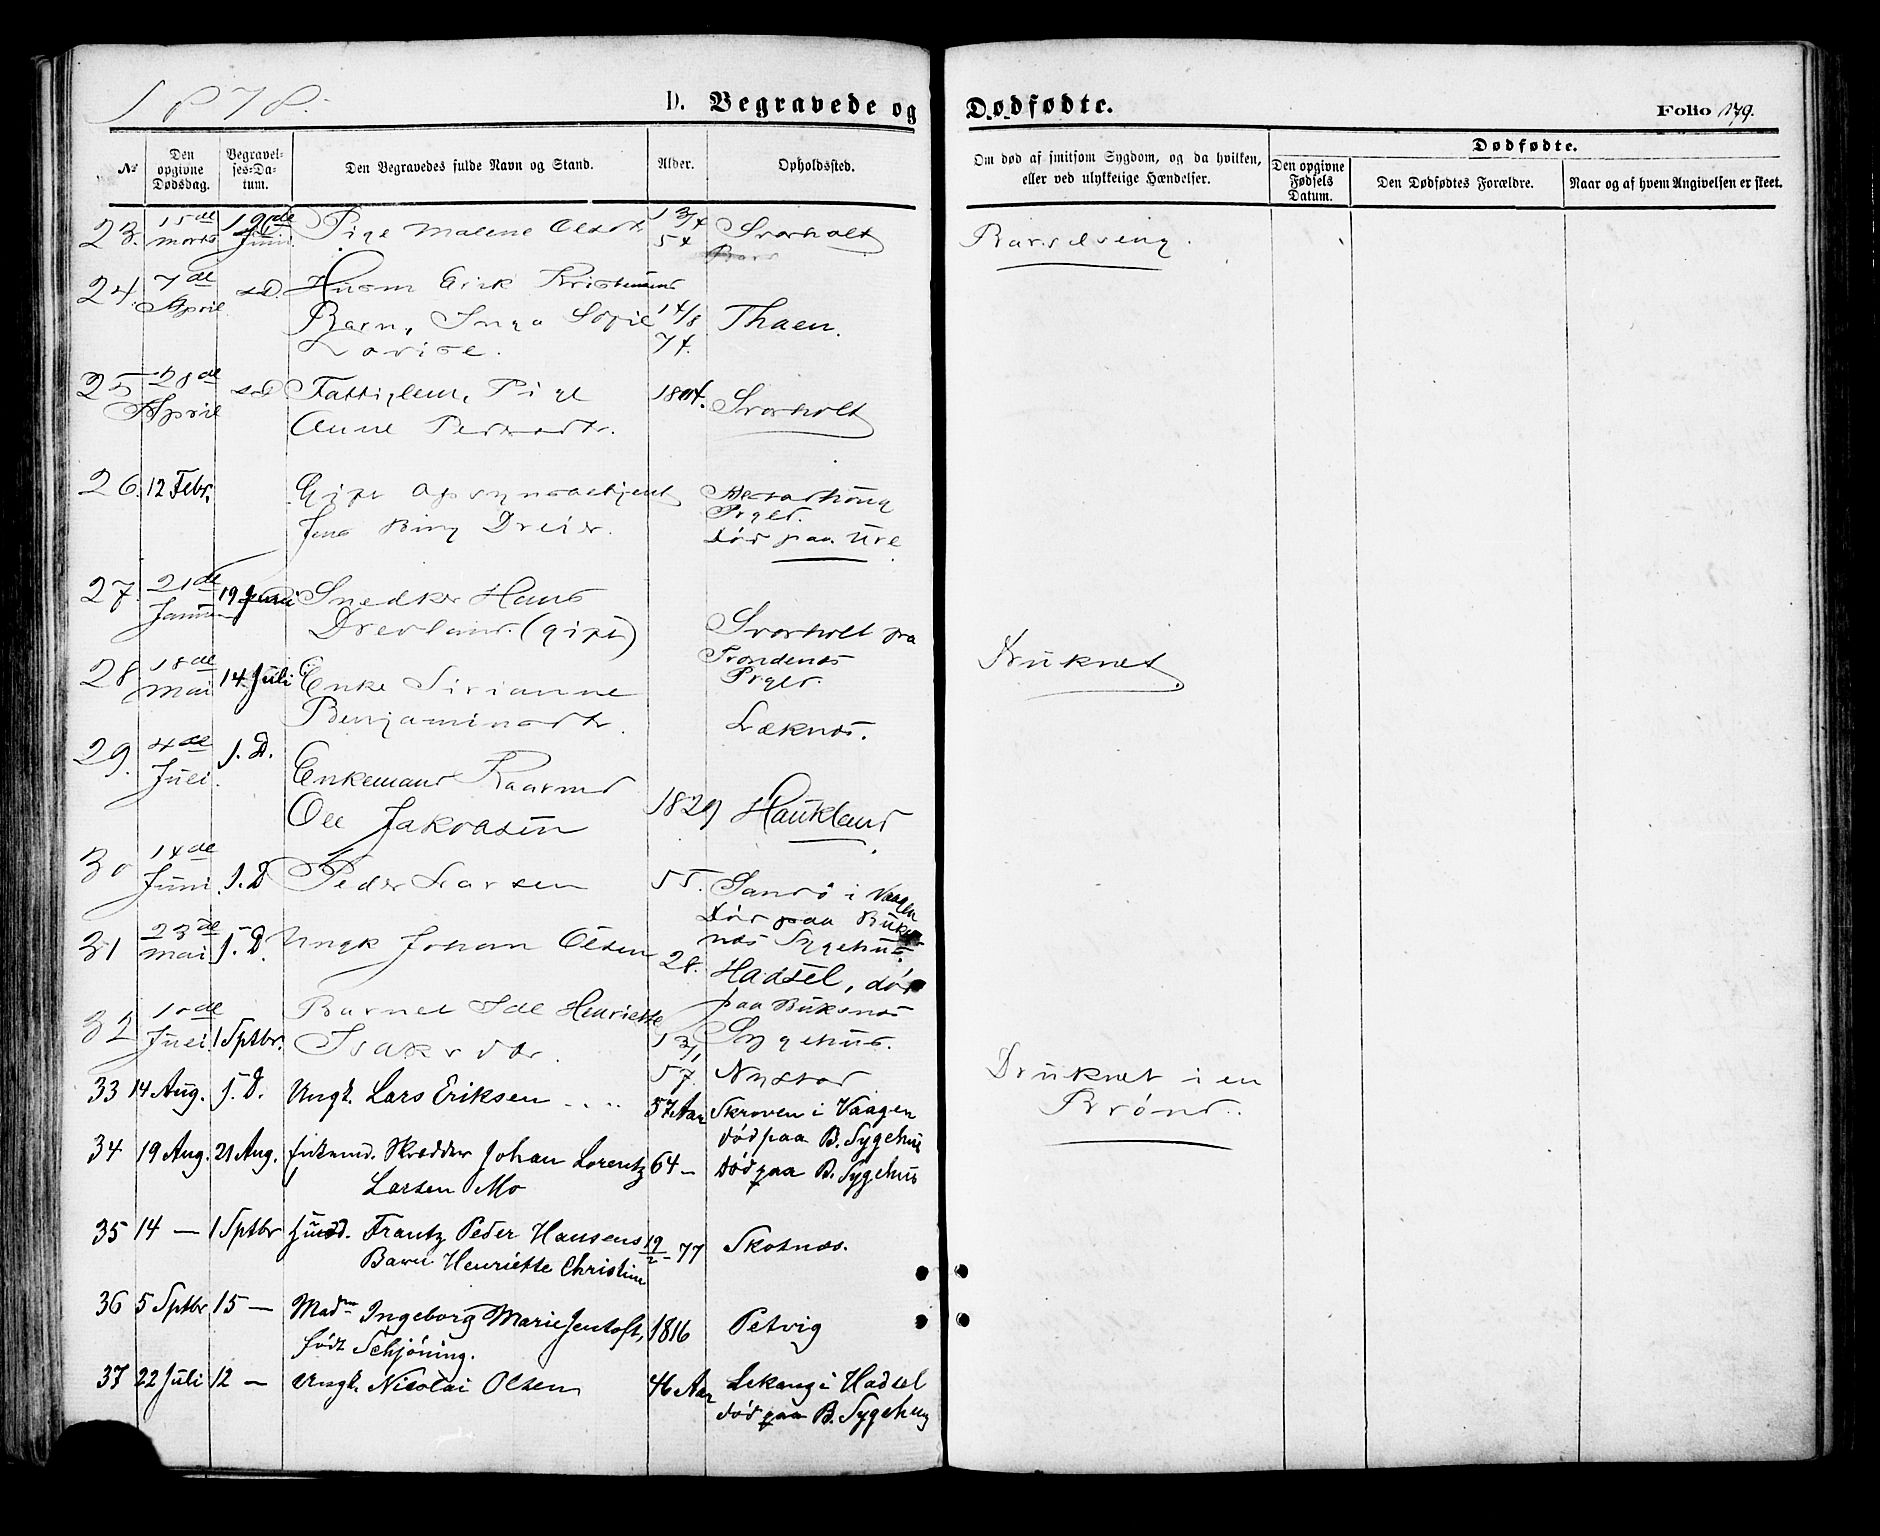 1878.
D. Begravede og Dødfødte. Folio 179.
No
Den opgivne Dødsdag.
Begravelses-Datum.
Den Begravedes fulde Navn og Stand.
Alder.
Opholdssted.
Om død af smitsom Sygdom, og da hvilken, eller ved ulykkelige Hændelser.
Dødfødte.
Den opgivne Fødsels Datum.
Den Dødfødtes Forældre.
Naar og af hvem Angivelsen er skeet.
23. 15de Marts Juni Pige Malene Olsdtr 1 3/4 54 Svarholt Barselseng.
24. 7de April s.D. Husm Eirik Kristensens
Barn, Inga Sofie 14/8 74. Thaen.
Lovise.
25 28de April s.D. Fattiglem, Pige 1804. Svarholt
Anne Pedersdtr.
26. 12 Febr. Gift Opsynsbetjent
Jens Bing Dreier. Prgld.
Død paa Ure
27. 21de Januar 19 Juni Snedker Hans
Drevland. (gift) Svarholt fra
Trondenes
Prgld. Druknet.
28 18de Mai 14 Juli Enke Sirianne
Benjaminsdtr. Læknes.
29. 4de Juli s.D. Enkemand Kaarmd
Ole Jakobsen 1829 Haukland
30 14de Juni s.D Peder Larsen 55. Sandø i Vaagen
Død paa Buksnes Sygehus.
31 23de Mai s.D. Ungk Johan Olsen 28. Hadsel, død
paa Buksnes
Sygehus.
32 10de Juli 1 Sptbr. Barnet Ida Henriette
Isaksdtr. 13/1 57. Nystad Druknet i en
Brønd.
33 14 Aug. s.D. Ungk. Lars Eriksen 57 Aar Skroven i Vaagen
død paa B. Sygehus
34 19 Aug. 21 Aug. Enkemd. Skrædder Johan Lorentz 64 - Død paa B. Sygehus
Larsen Mo
35 14 — 1 Sptbr Husd. Frantz Peder Hansens 19/2 - 77 Skotnes.
Barn Henriette Christine
36 5 Sptbr 15 — Madm Ingeborg Marie Jentoft, 1816 Petvig
født Schjöning.
37 22 Juli 12 — Ungk. Nicolai Olsen 46 Aar Lekang i Hadsel
død paa B. Sygehus